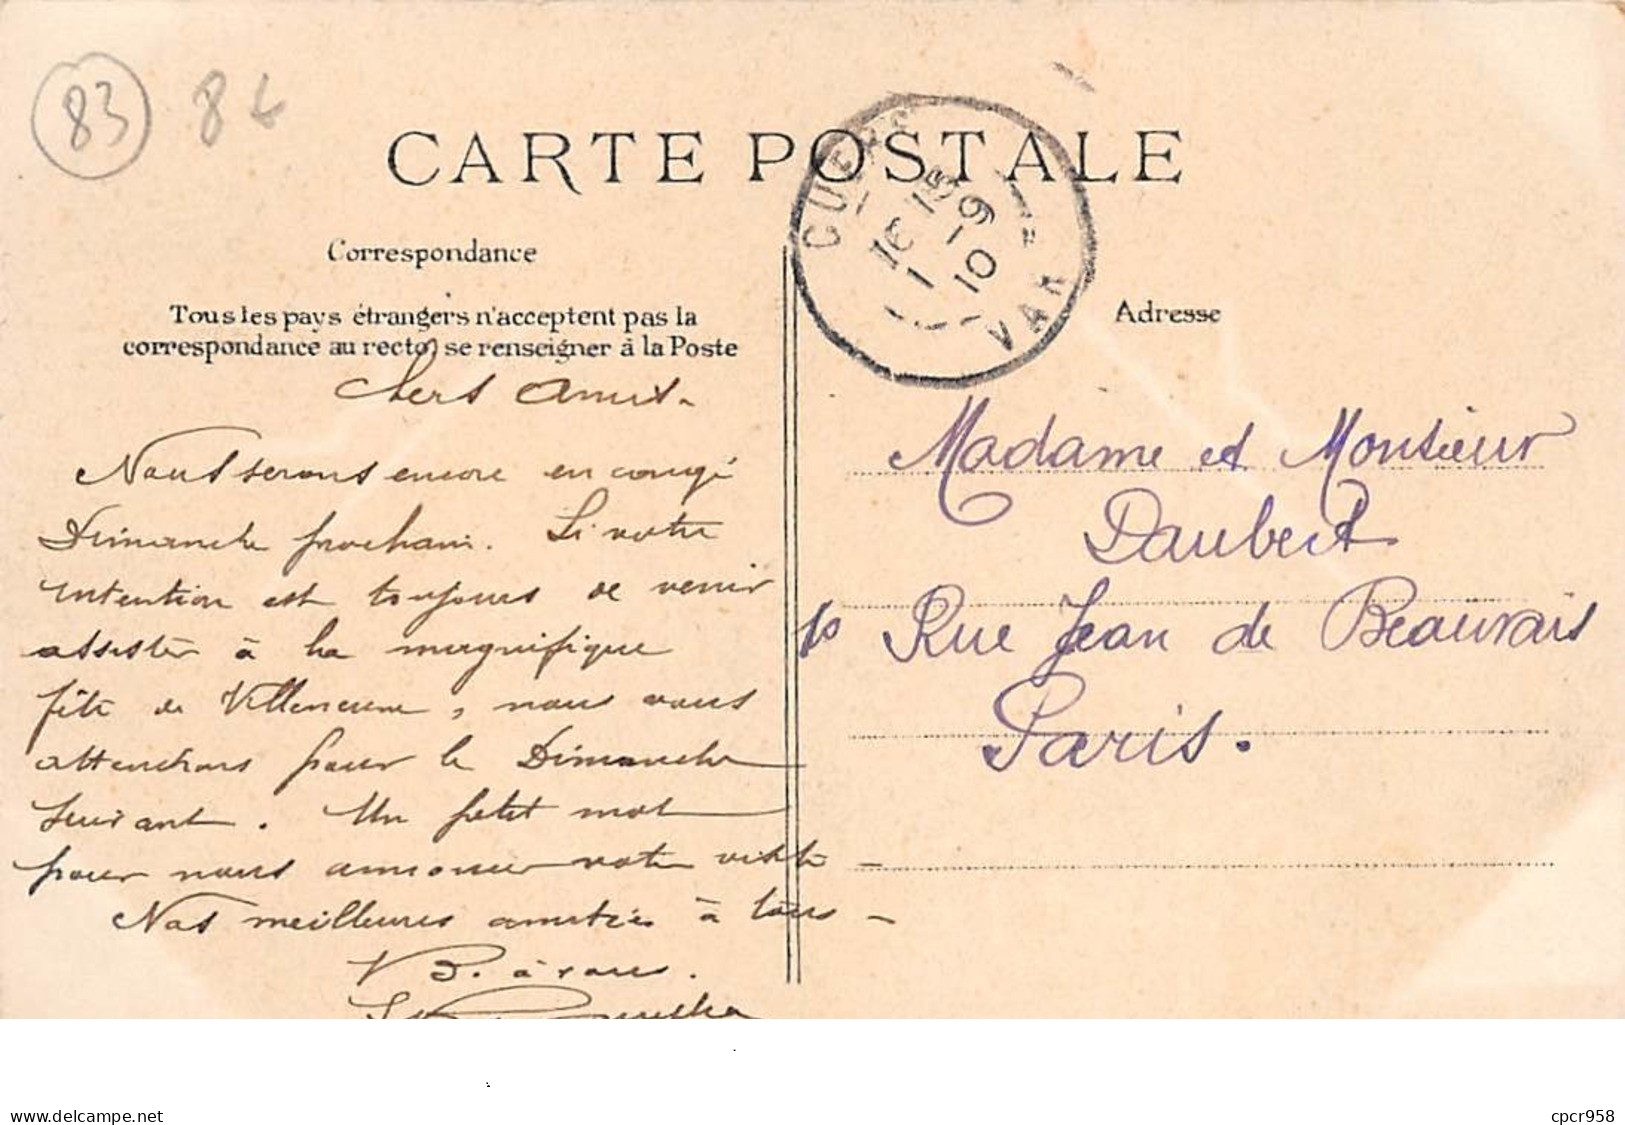 83 86
CARTE POSTALE
CUERS
16 15
1 -9
10
VAR
Correspondance
Tous les pays étrangers n'acceptent pas la
correspondance au recto, se renseigner à la Poste
Adresse
Chers Amis -
Nous serons encore en congé
Dimanche prochain. Si votre
intention est toujours de venir
assister à la magnifique
fête de Villeneuve, nous vous
attendons pour le Dimanche
suivant. Un petit mot
pour nous annoncer votre visite -
Nos meilleures amitiés à tous -
B. à vous.
Madame et Monsieur
Daubert
10 Rue Jean de Beauvais
Paris.
www.delcampe.net
cpcr958